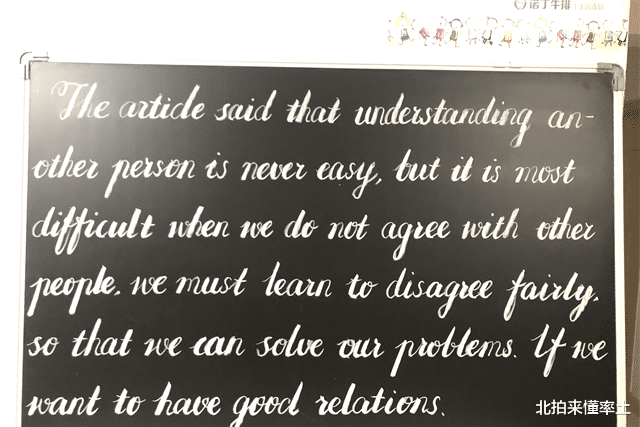 诺丁牛排
The article said that understanding an-
other person is never easy, but it is most
difficult when we do not agree with other
people. we must learn to disagree fairly.
so that we can solve our problems. If we
want to have good relations.
北拍来懂率土